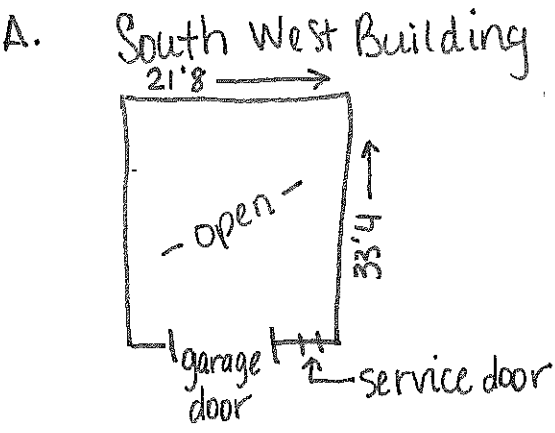 A. South West Building
21'8
- open -
33'4
garage
door
service door